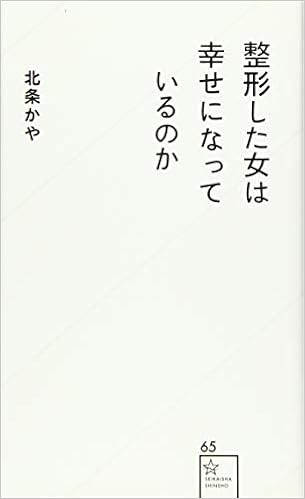 整形した女は
幸せになって
いるのか
北条かや
65
SEIKAISHA
SHINSHO